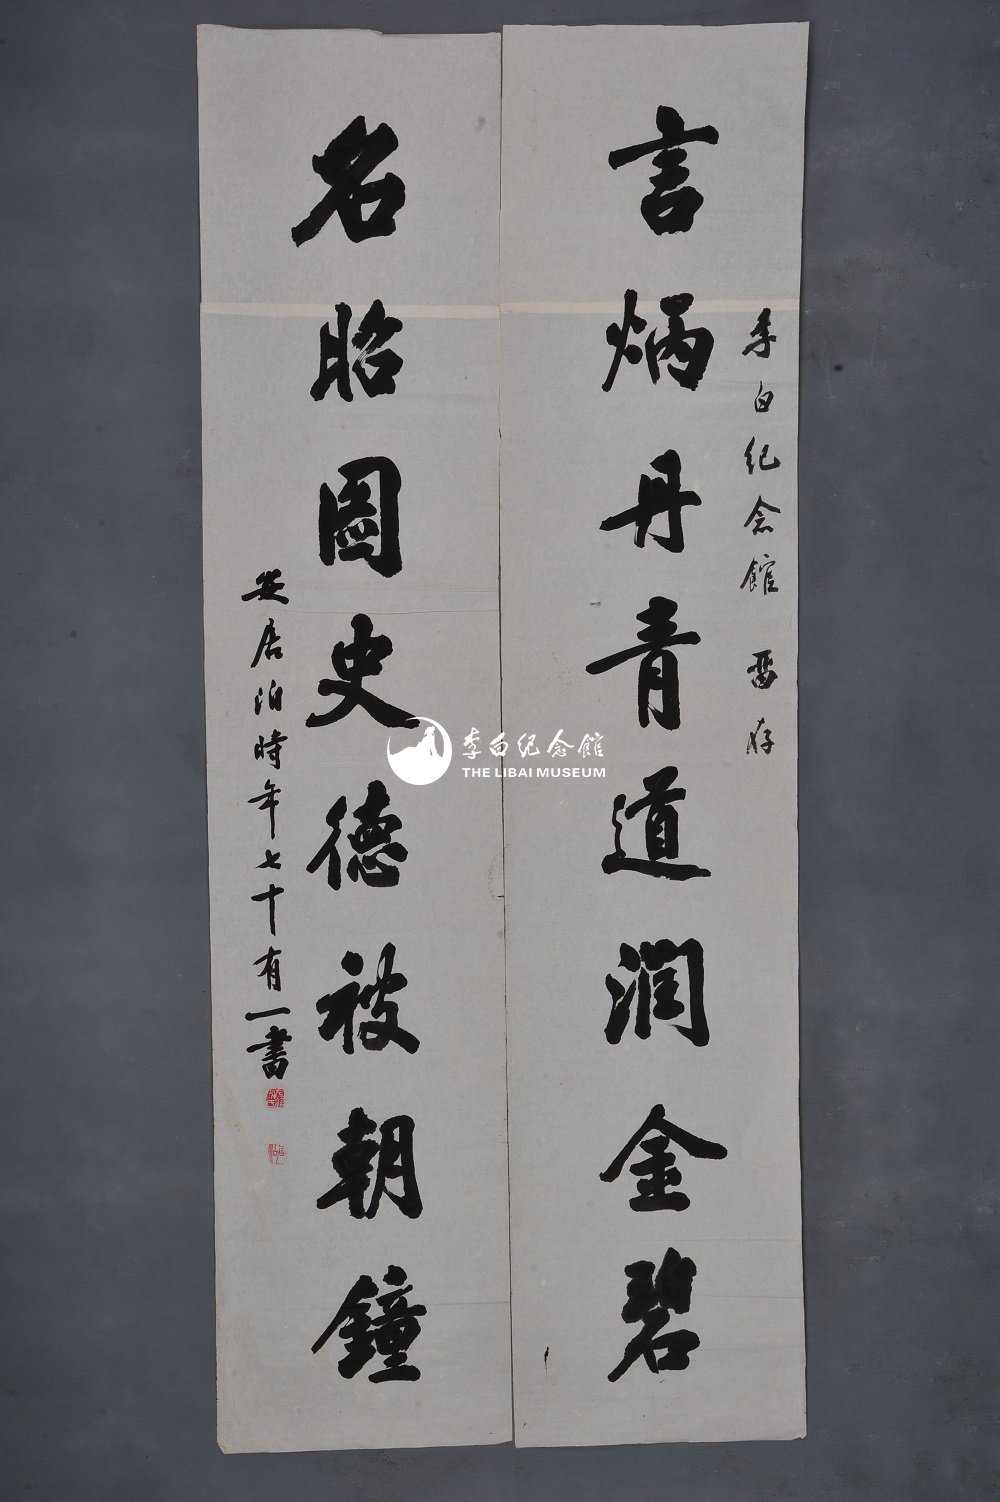 李白纪念館 畱存
言炳丹青道润金碧
名昭圖史德被朝鐘
安居泊時年七十有一書
李白纪念館
THE LIBAI MUSEUM